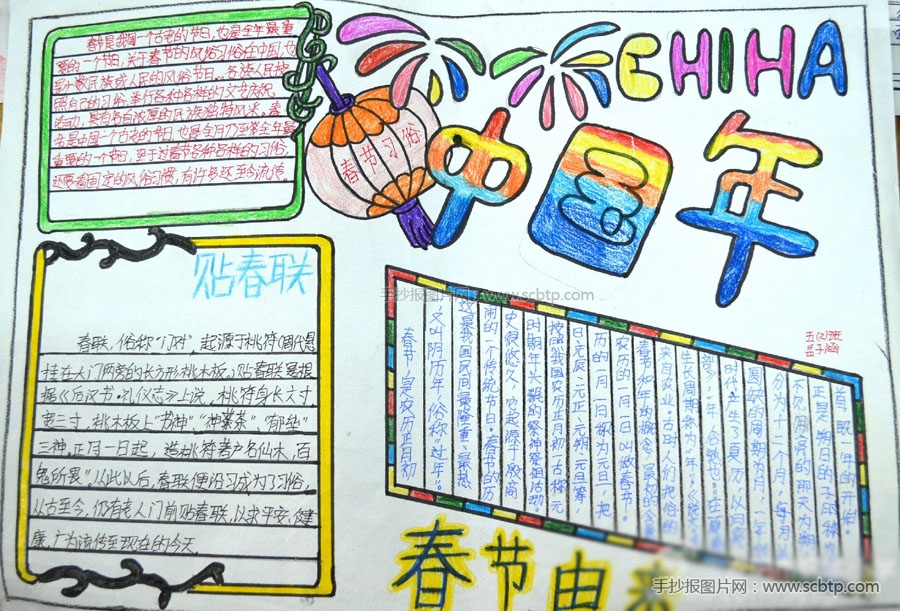 CHIHA
中国年
春节习俗
春节是我国一个古老的节日,也是全年最重
要的一个节日,关于春节的风俗习俗在中国,也
是少数民族成人民的风俗节日。各族人民按
照自己的习俗,举行各种各样的文艺庆祝
活动,具有各自浓厚的民族独特风采。春
节是中国一个古老的节日,也是全年最
重要的一个节日,至于过春节各种各样的习俗,
还要看固定的风俗习惯,有许多还至今流传
贴春联
春联,俗称"门对",起源于桃符(周代悬
挂在大门两旁的长方形桃木板)贴春联
据《后汉书·礼仪志》上说,桃符身长六寸
宽三寸,桃木板上"书神""神荼""郁垒"
三神,正月一日起,造桃符著户名仙木,百
鬼所畏"从此以后,春联便沿习成为了习俗,
从古至今,仍有老人门前贴春联,以求平安、健
康,广为流传至现在的今天.
春节,是农历正月初
一,又叫阴历年,俗称"过年"。
这是我国民间最隆重、最热
闹的一个传统节日。春节的历
史很悠久,它起源于殷商
时期年头岁尾的祭神祭祖活动。
按照我国农历正月初一古称元
日、元辰、元正、元旦等,
历的一月一日称为元旦,把
农历的一月一日叫做春节。
春节和年的概念,最初的含意
来自农业,古时人们把谷的
生长周期称为"年"
时代产生了夏历,以月
圆缺的周期为月,一年
分为十二个月,每月以
不见月亮的那天为朔,
正月朔日的子时称为
首,即一年的开始
五(2)班
春节由来
手抄报图片网 www.scbtp.com
手抄报图片网:www.scbtp.com